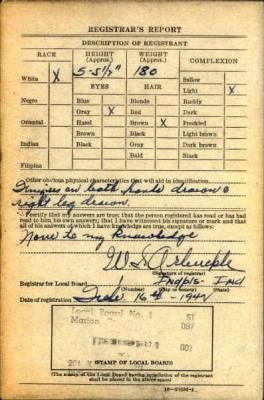 REGISTRAR'S REPORT
DESCRIPTION OF REGISTRANT
RACE HEIGHT (Approx.) WEIGHT (Approx.) COMPLEXION
5-5½" 180 Sallow
White X EYES HAIR Light X
Negro Blue Blonde Ruddy
Gray X Red Dark
Oriental Hazel Brown X Freckled
Brown Black Light brown
Indian Black Gray Dark brown
Bald Black
Filipino
Other obvious physical characteristics that will aid in identification
Fingers on both hands drawn &
right leg drawn.
I certify that my answers are true; that the person registered has read or has had
read to him his own answers; that I have witnessed his signature or mark and that
all of his answers of which I have knowledge are true, except as follows:
None to my knowledge
(Signature of registrar)
Registrar for Local Board Indpls - Ind
(Number) (City or county) (State)
Date of registration 16th - 1942
Local Board No. 1 51
Marion 097
001
(STAMP OF LOCAL BOARD)
(The stamp of the Local Board having jurisdiction of the registrant
shall be placed in the above space)